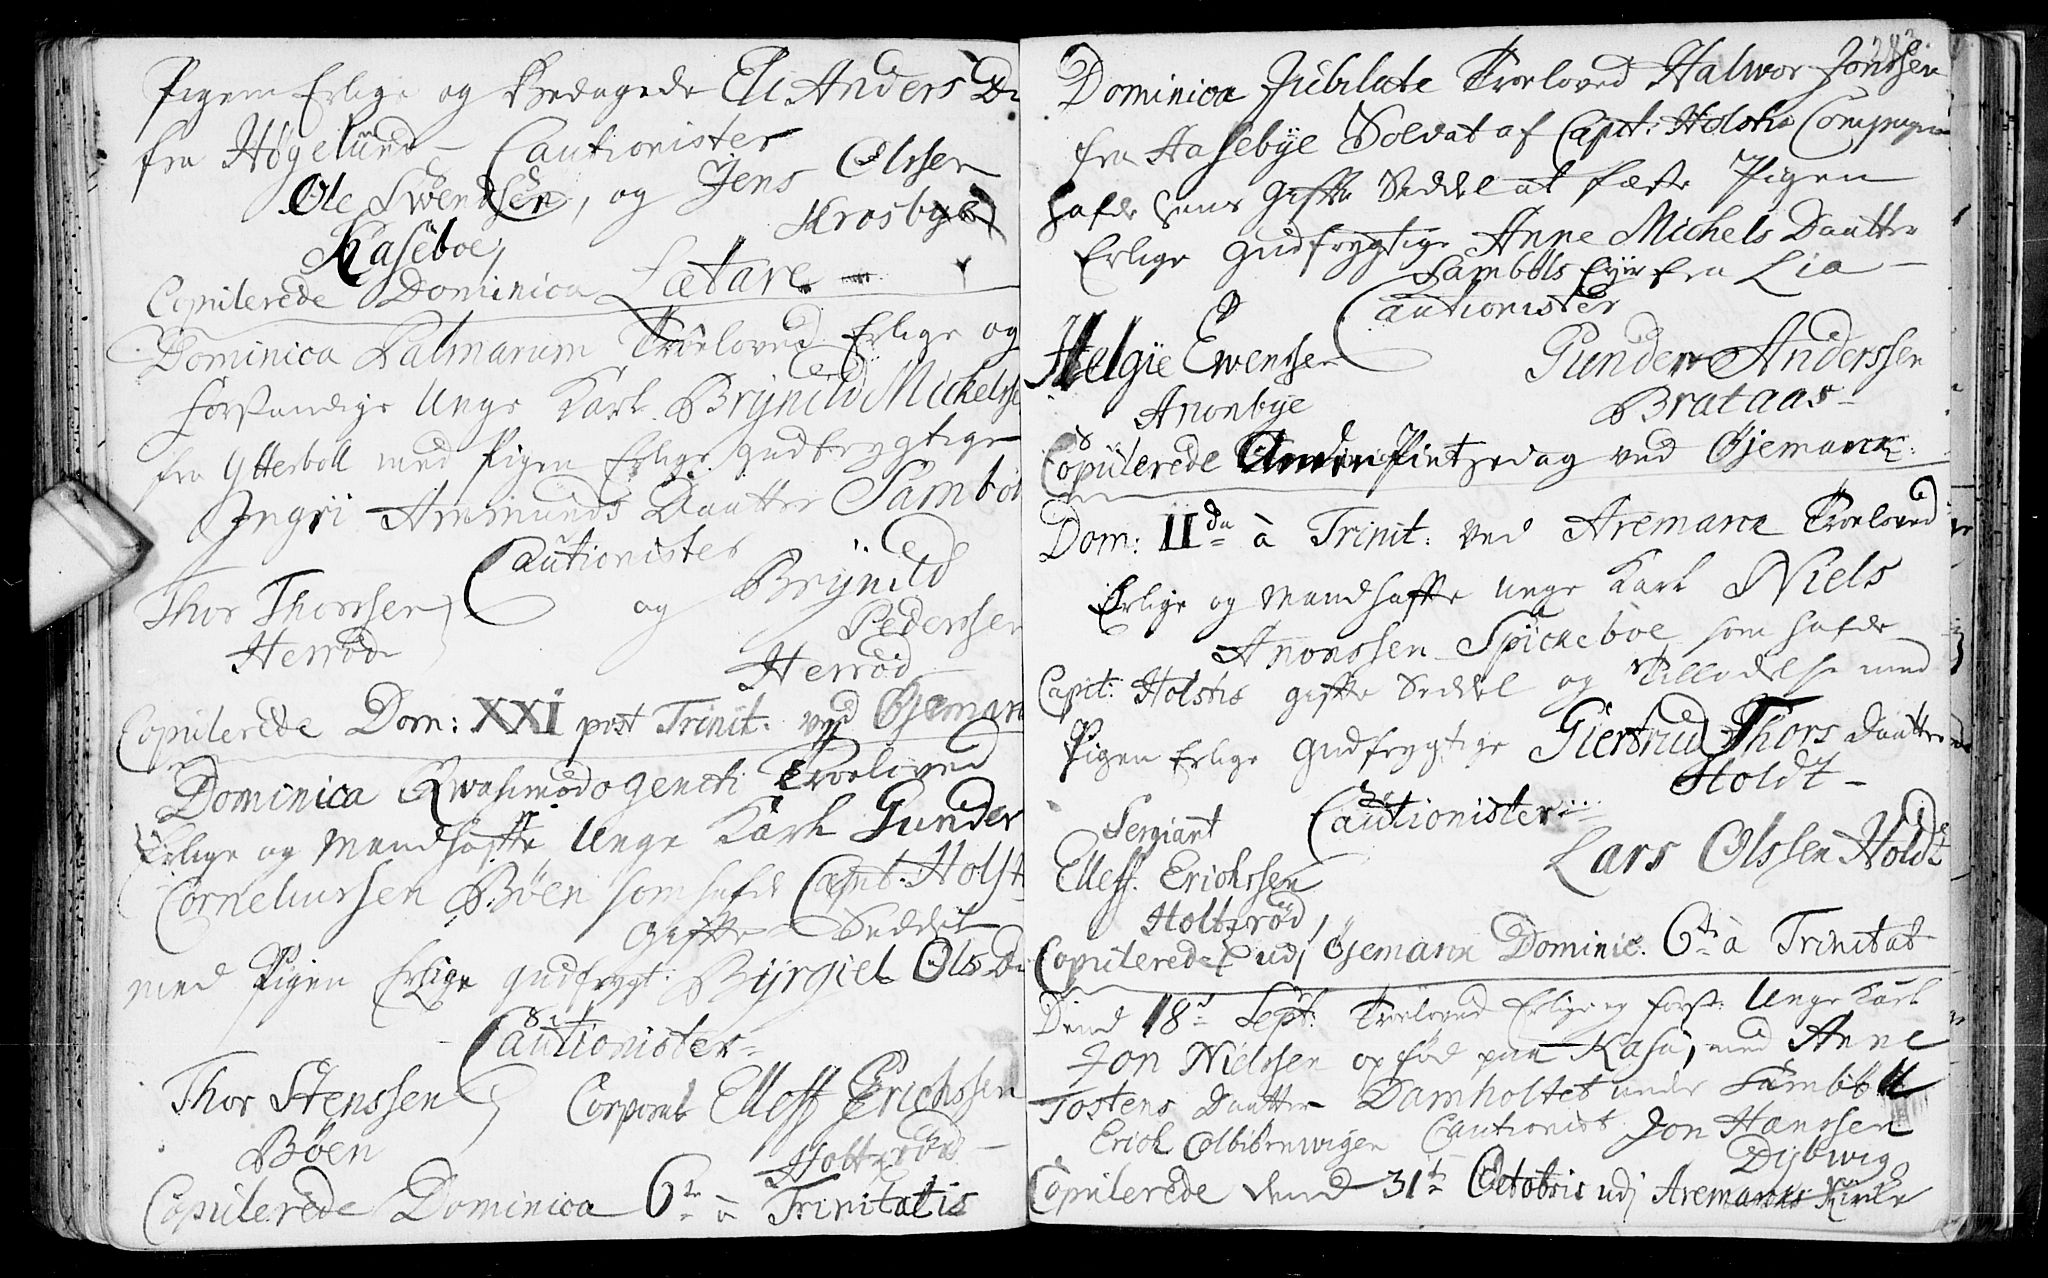 Pigen Erlige og Bedagede Eli Anders D
fra Högelund – Cautionister
Ole Swendsen, og Jens Olssen
Kaseboe, Krosbye
Copulerede Dominica Lætare –
Dominica Palmarum Troeloved Erlige og
forstandige Unge Karl Brynild Michelsse
fra Ytterböll med Pigen Erlige gudfrygtige
Ingri Ammunds Daatter Sambøl
Cautionister
Thor Thorssen og Brÿnild
Herröd Pederssen
Herröd
Copulerede Dom: XXI post Trinit: ved Öjemar
Dominica Qwasimodogeneti Troeloved
Erlige og Mandhaffte Unge Karl Gunder
Corneliussen Böen som hafde Capt: Holst
Giffte Seddel
med Pigen Erlige gudfrygt: Byrgiel Ols D
Cautionister
Thor Stenssen Corporal Elleff Erichssen
Böen Holtzröd –
Copulerede Dominica 6te à Trinitatis
282
Dominica Jubilate Troeloved Halwor Jonssen
fra Hasebye Soldat af Capt: Holstes Compagni
hafde hans Giffte Seddel at fæste Pigen
Erlige gudfrygtige Anne Michels Daatter
Sambøls Eyer fra Lia –
Cautionister
Helgie Ewenssen Gunder Anderssen
Anonbye Brataas –
Copulerede Anden Pintzedag ved Öjemarck:
Dom: IIda à Trinit: ved Aremarck Troeloved
Erlige og Mandhaffte unge Karl Niels
Anonssen Spickeboe som hafde
Capit: Holstes giffte Seddel og Tilladelse med
Pigen Erlige Gudfrygtige Giertrud Thors Daatter
Holdt –
Sergiant Cautionister
Elleff Erichssen Lars Olssen Holdt
Holtzröd
Copulerede udj Öjemarck Dominic: 6te à Trinitat
Dend 18d Sept: Troeloved Erlige og forst: Unge Karl
Jon Nielssen opfød paa Kasa, med Anne
Tostens Daatter Damholtet under Sambøll
Erich Colbiörnwigen Cautionist Jon Hanssen
Dybwig
Copulerede dend 31te Octobris udj Aremarks Kirke